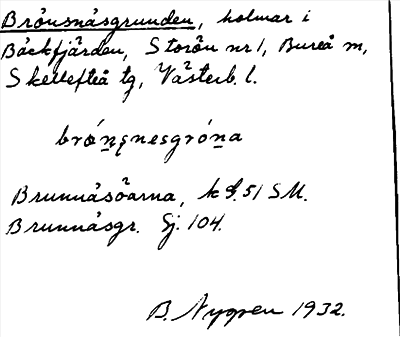 Brönsnäsgrunden, holmar i
Bäckfjärden, Storön nr 1, Bureå m,
Skellefteå tg, Västerb. l.
brón̥s̥nesgróna
Brunnäsöarna, k bl. 51 SM.
Brunnäsgr. Sj. 104.
B. Nygren 1932.